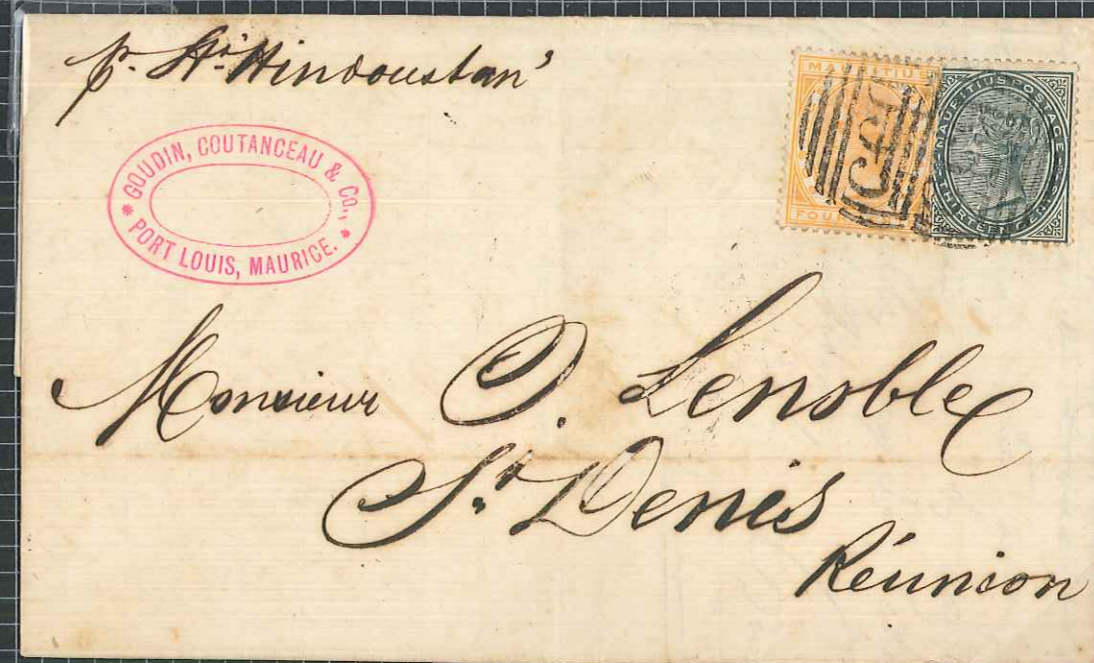 p. Str. "Hindoustan"
GOUDIN, COUTANCEAU & CO.,
PORT LOUIS, MAURICE.
MAURITIUS
FOUR
B53
MAURITIUS POSTAGE
THIRTEEN CENTS
Monsieur O. Lenoble
St. Denis
Réunion